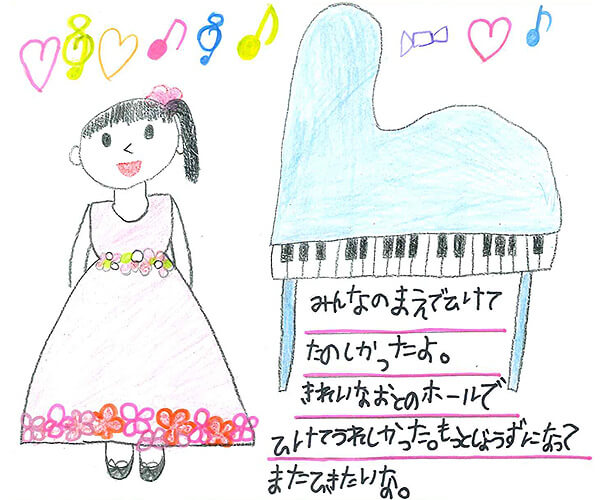 みんなのまえでひけて
たのしかったよ。
きれいなおとのホールで
ひけてうれしかった。もっとじょうずになって
またひきたいな。